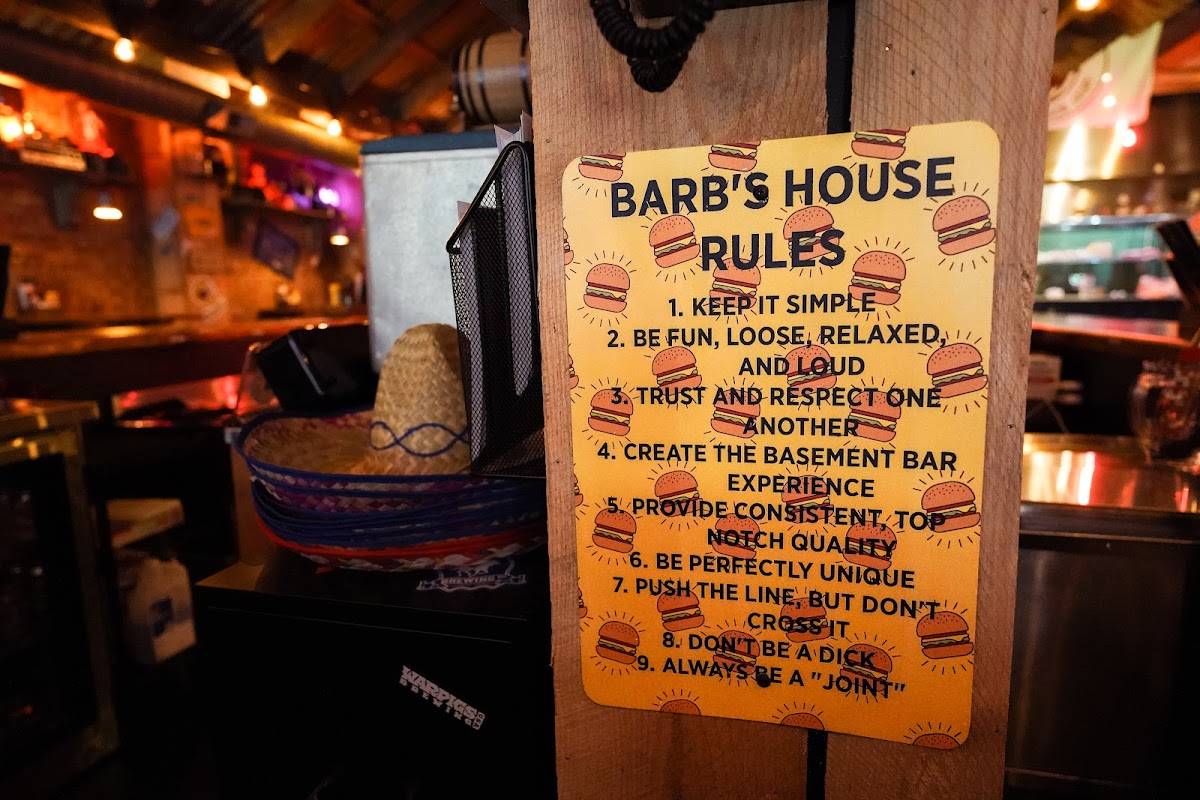 BARB'S HOUSE
RULES
1. KEEP IT SIMPLE
2. BE FUN, LOOSE, RELAXED,
AND LOUD
3. TRUST AND RESPECT ONE
ANOTHER
4. CREATE THE BASEMENT BAR
EXPERIENCE
5. PROVIDE CONSISTENT, TOP
NOTCH QUALITY
6. BE PERFECTLY UNIQUE
7. PUSH THE LINE, BUT DON'T
CROSS IT
8. DON'T BE A DICK
9. ALWAYS BE A "JOINT"
BREWING
WARPIGS
BREWING